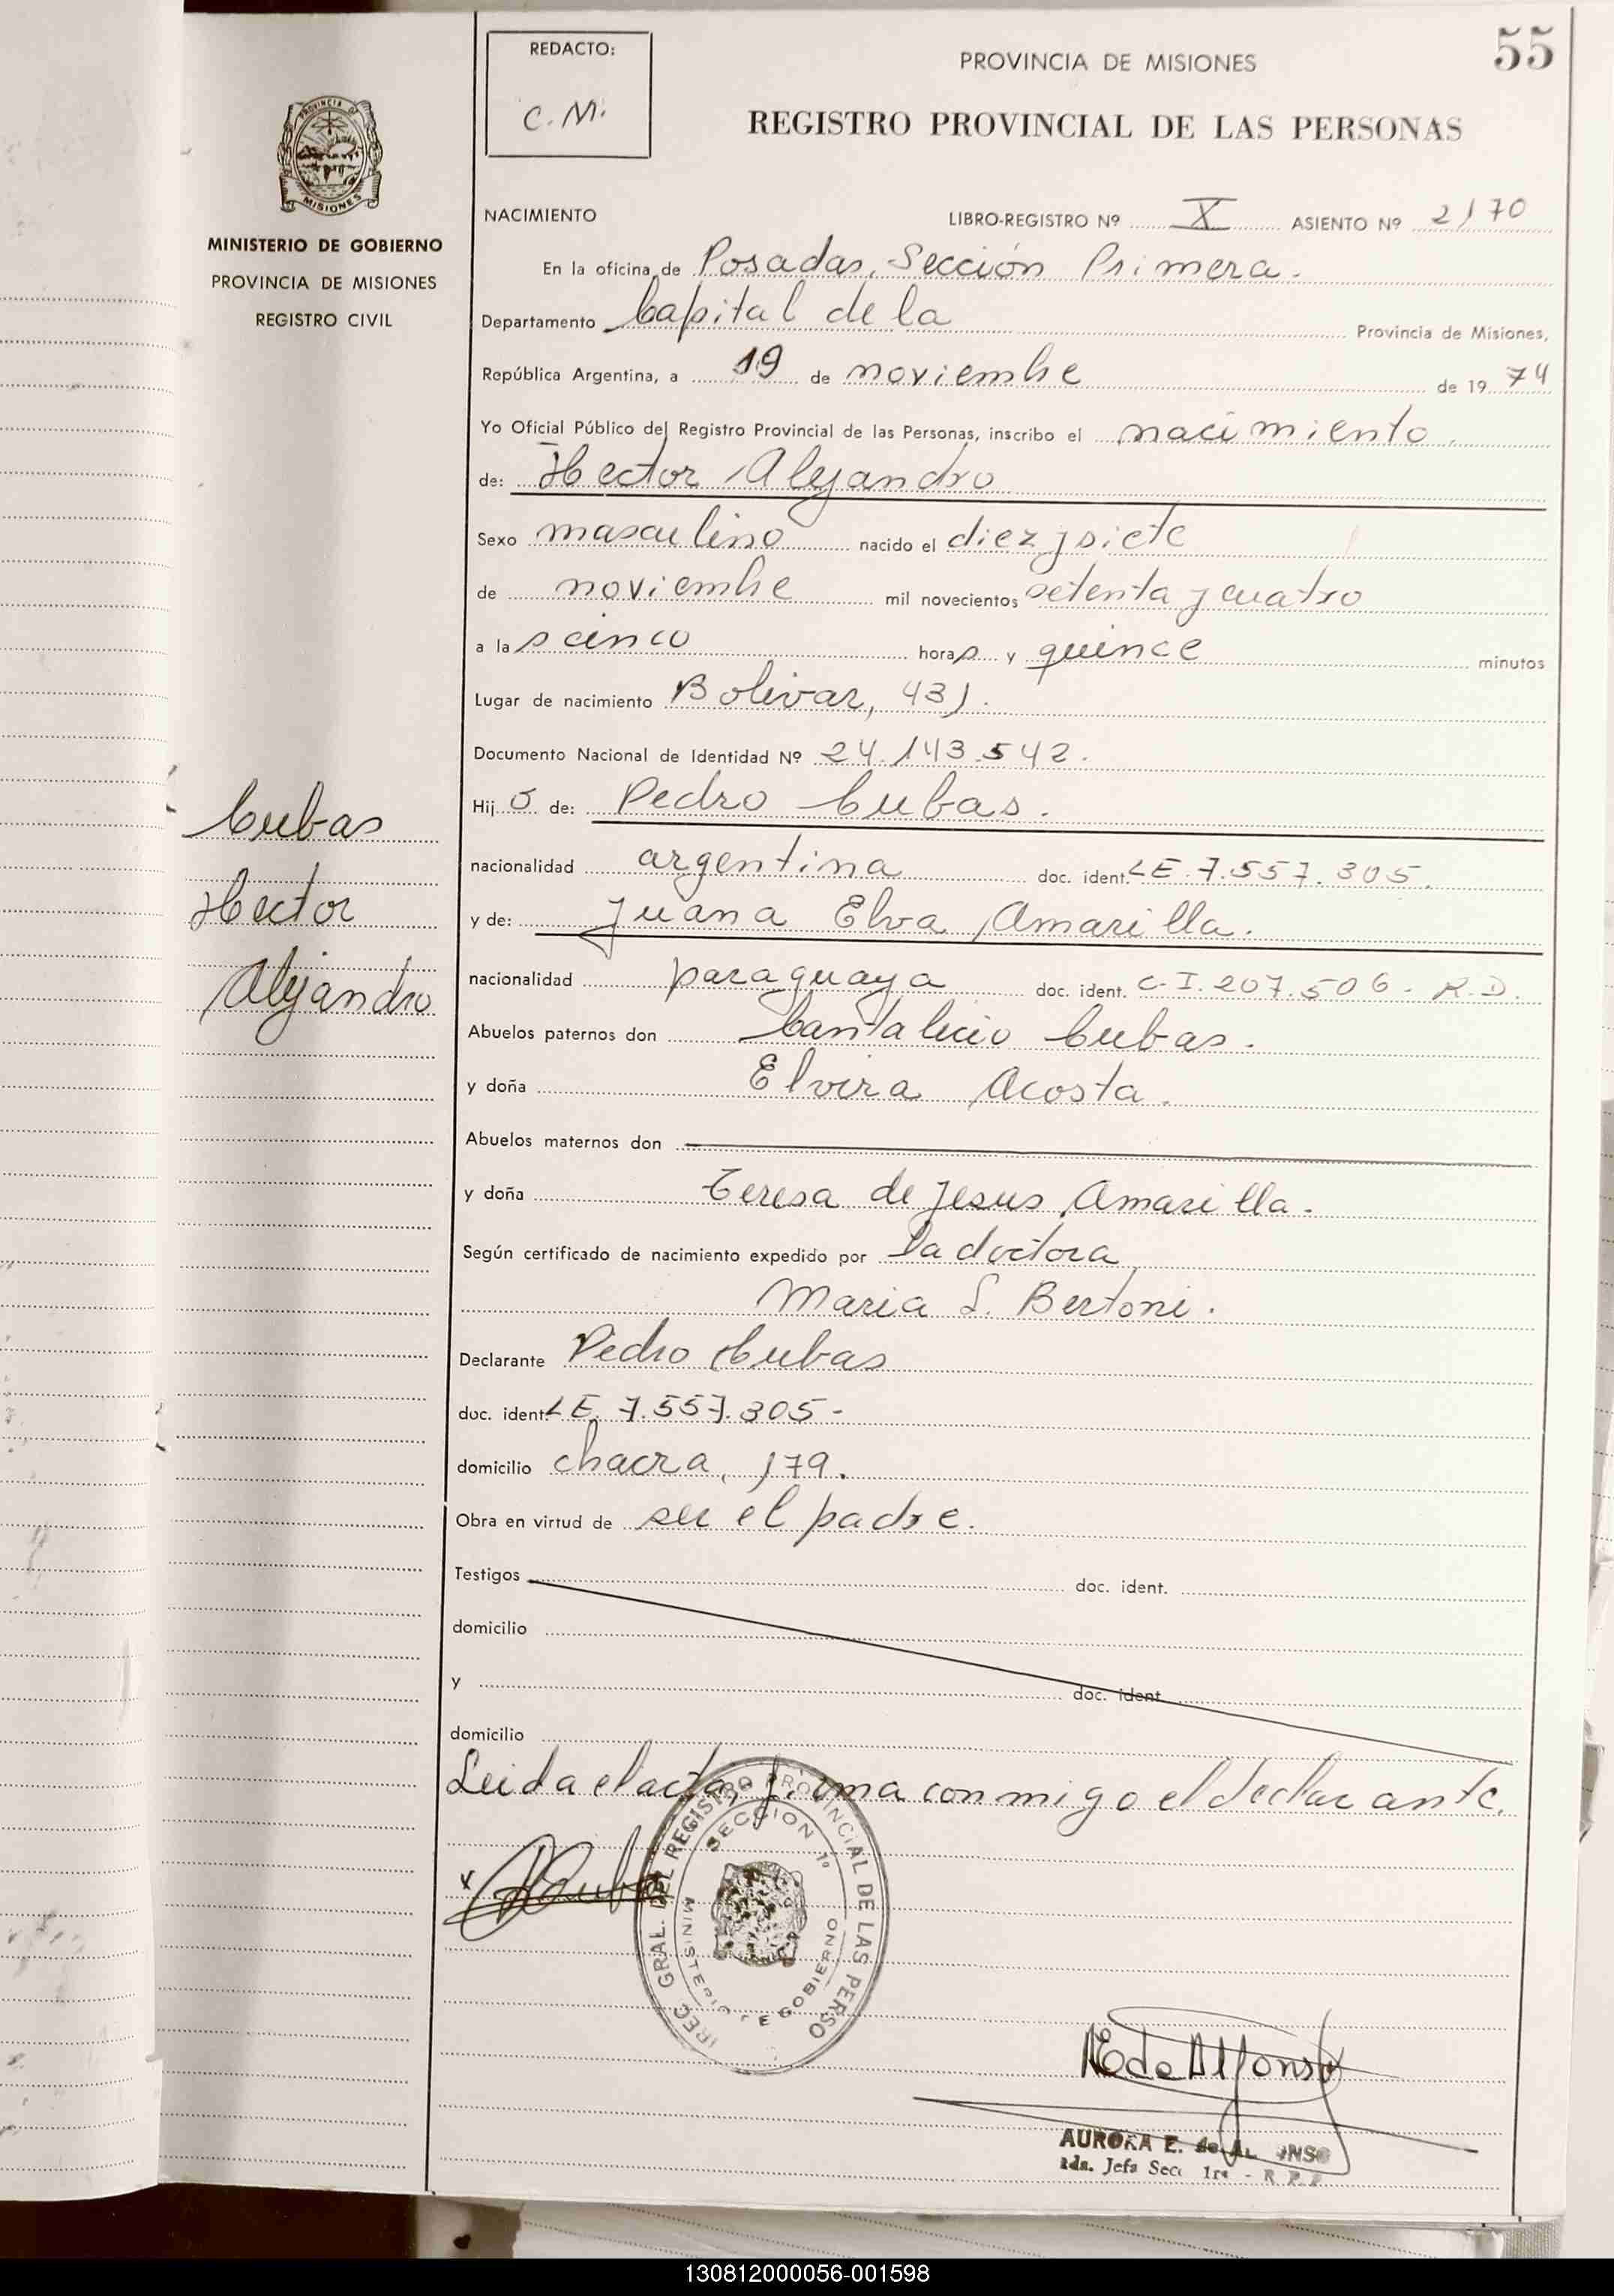 REDACTO:
C. M.
PROVINCIA DE MISIONES
55
REGISTRO PROVINCIAL DE LAS PERSONAS
PROVINCIA DE
MISIONES
MINISTERIO DE GOBIERNO
PROVINCIA DE MISIONES
REGISTRO CIVIL
NACIMIENTO LIBRO-REGISTRO Nº X ASIENTO Nº 2170
En la oficina de Posadas, Sección Primera.
Departamento Capital de la Provincia de Misiones,
República Argentina, a 19 de noviembre de 19 74
Yo Oficial Público del Registro Provincial de las Personas, inscribo el nacimiento
de: Hector Alejandro
Sexo masculino nacido el diez y siete
de noviembre mil novecientos setenta y cuatro
a la s cinco horas y quince minutos
Lugar de nacimiento Bolivar, 431.
Documento Nacional de Identidad Nº 24.143.542.
Hij o de: Pedro Cubas.
Cubas
Hector
Alejandro
nacionalidad argentina doc. ident. LE 7.557.305.
y de: Juana Elva Amarilla.
nacionalidad paraguaya doc. ident. C.I. 207.506 - R.D.
Abuelos paternos don Cantalicio Cubas.
y doña Elvira Acosta.
Abuelos maternos don
y doña Teresa de Jesus Amarilla.
Según certificado de nacimiento expedido por la doctora
Maria L. Bertoni.
Declarante Pedro Cubas
doc. ident. LE. 7.557.305-
domicilio chacra, 179.
Obra en virtud de ser el padre.
Testigos doc. ident.
domicilio
y doc. ident.
domicilio
Leida el acta, firma conmigo el declarante.
IREC. GRAL. DEL REGISTRO PROVINCIAL DE LAS PERSO
SECCION 1ª
MINISTERIO DE GOBIERNO
AURORA E. de ALFONSO
2da. Jefa Secc. 1ra - R. P. P.
130812000056-001598